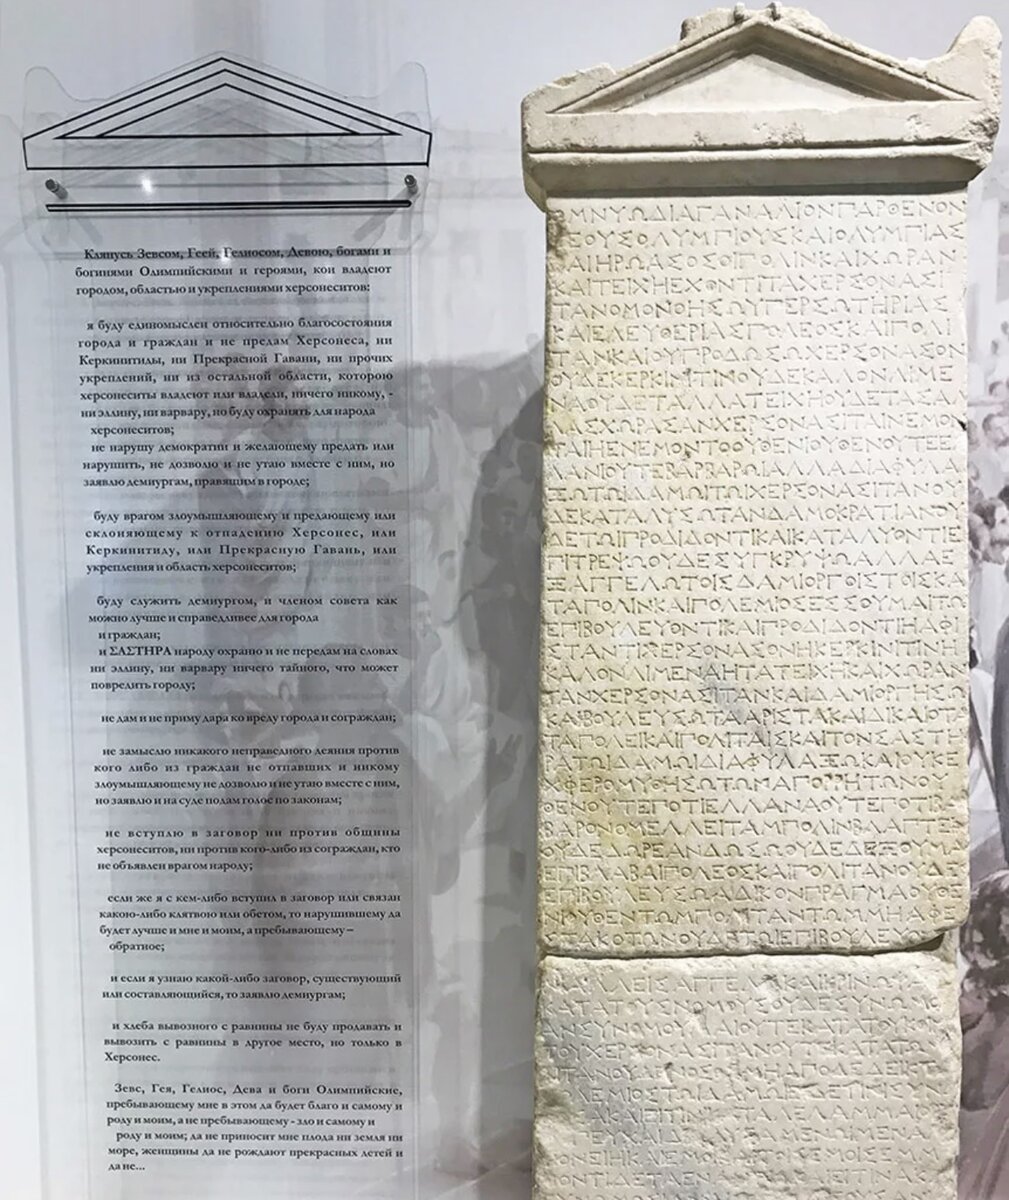 Клянусь Зевсом, Геей, Гелиосом, Девою, богами и
богинями Олимпийскими и героями, кои владеют
городом, областью и укреплениями херсонеситов:
я буду единомыслен относительно благосостояния
города и граждан и не предам Херсонеса, ни
Керкинитиды, ни Прекрасной Гавани, ни прочих
укреплений, ни из остальной области, которою
херсонеситы владеют или владели, ничего никому, -
ни эллину, ни варвару, но буду охранять для народа
херсонеситов;
не нарушу демократии и желающему предать или
нарушить, не дозволю и не утаю вместе с ним, но
заявлю демиургам, правящим в городе;
буду врагом злоумышляющему и предающему или
склоняющему к отпадению Херсонес, или
Керкинитиду, или Прекрасную Гавань, или
укрепления и область херсонеситов;
буду служить демиургом, и членом совета как
можно лучше и справедливее для города
и граждан;
и ΣΑΣΤΗRА народу охраню и не передам на словах
ни эллину, ни варвару ничего тайного, что может
повредить городу;
не дам и не приму дара ко вреду города и сограждан;
не замыслю никакого неправедного деяния против
кого либо из граждан не отпавших и никому
злоумышляющему не дозволю и не утаю вместе с ним,
но заявлю и на суде подам голос по законам;
не вступлю в заговор ни против общины
херсонеситов, ни против кого-либо из сограждан, кто
не объявлен врагом народу;
если же я с кем-либо вступил в заговор или связан
какою-либо клятвою или обетом, то нарушившему да
будет лучше и мне и моим, а пребывающему –
обратное;
и если я узнаю какой-либо заговор, существующий
или составляющийся, то заявлю демиургам;
и хлеба вывозного с равнины не буду продавать и
вывозить с равнины в другое место, но только в
Херсонес.
Зевс, Гея, Гелиос, Дева и боги Олимпийские,
пребывающему мне в этом да будет благо и самому и
роду и моим, а не пребывающему - зло и самому и
роду и моим; да не приносит мне плода ни земля ни
море, женщины да не рождают прекрасных детей и
да не...
ΟΜΝΥΩΔΙΑΓΑΝΑΛΙΟΝΠΑΡΘΕΝΟΝ
ΘΕΟΥΣΟΛΥΜΠΙΟΥΣΚΑΙΟΛΥΜΠΙΑΣ
ΚΑΙΗΡΩΑΣΟΣΟΙΠΟΛΙΝΚΑΙΧΩΡΑΝ
ΚΑΙΤΕΙΧΗΕΧΟΝΤΙΤΑΧΕΡΣΟΝΑΣΙ
ΤΑΝΟΜΟΝΟΗΣΩΥΠΕΡΣΩΤΗΡΙΑΣ
ΚΑΙΕΛΕΥΘΕΡΙΑΣΠΟΛΕΟΣΚΑΙΠΟΛΙ
ΤΑΝΚΑΙΟΥΠΡΟΔΩΣΩΧΕΡΣΟΝΑΣΟΝ
ΟΥΔΕΚΕΡΚΙΝΙΤΙΝΟΥΔΕΚΑΛΟΝΛΙΜΕ
ΝΑΟΥΔΕΤΑΛΛΑΤΕΙΧΗΟΥΔΕΤΑΣΑΛ
ΛΑΣΧΩΡΑΣΑΝΧΕΡΣΟΝΑΣΙΤΑΙΝΕΜΟΝ
ΤΑΙΗΕΝΕΜΟΝΤΟΟΥΘΕΝΙΟΥΘΕΝΟΥΤΕΕΛ
ΛΑΝΙΟΥΤΕΒΑΡΒΑΡΩΙΑΛΛΑΔΙΑΦΥΛΑ
ΞΩΤΩΙΔΑΜΩΙΤΩΙΧΕΡΣΟΝΑΣΙΤΑΝΟΥ
ΔΕΚΑΤΑΛΥΣΩΤΑΝΔΑΜΟΚΡΑΤΙΑΝΟΥ
ΔΕΤΩΙΠΡΟΔΙΔΟΝΤΙΚΑΙΚΑΤΑΛΥΟΝΤΙΕ
ΠΙΤΡΕΨΩΟΥΔΕΣΥΓΚΡΥΨΩΑΛΛΑΕ
ΞΑΓΓΕΛΩΤΟΙΣΔΑΜΙΟΡΓΟΙΣΤΟΙΣΚΑ
ΤΑΠΟΛΙΝΚΑΙΠΟΛΕΜΙΟΣΕΣΣΟΥΜΑΙΤΩ
ΕΠΙΒΟΥΛΕΥΟΝΤΙΚΑΙΠΡΟΔΙΔΟΝΤΙΗΑΦΙ
ΣΤΑΝΤΙΧΕΡΣΟΝΑΣΟΝΗΚΕΡΚΙΝΙΤΙΝΗ
ΚΑΛΟΝΛΙΜΕΝΑΗΤΑΤΕΙΧΗΚΑΙΧΩΡΑΝ
ΤΑΝΧΕΡΣΟΝΑΣΙΤΑΝΚΑΙΔΑΜΙΟΡΓΗΣΩ
ΚΑΙΒΟΥΛΕΥΣΩΤΑΑΡΙΣΤΑΚΑΙΔΙΚΑΙΟΤΑ
ΤΑΠΟΛΕΙΚΑΙΠΟΛΙΤΑΙΣΚΑΙΤΟΝΣΑΣΤΗ
ΡΑΤΩΙΔΑΜΩΙΔΙΑΦΥΛΑΞΩΚΑΙΟΥΚΕ
ΧΦΕΡΟΜΥΘΗΣΩΤΩΝΑΠΟΡΡΗΤΩΝΟΥ
ΘΕΝΟΥΤΕΠΟΤΙΕΛΛΑΝΑΟΥΤΕΠΟΤΙΒΑ
ΒΑΡΟΝΟΜΕΛΛΕΙΤΑΜΠΟΛΙΝΒΛΑΠΤΕΙ
ΟΥΔΕΔΩΡΕΑΝΔΩΣΩΟΥΔΕΔΕΞΟΥΜΑ
ΕΠΙΒΛΑΒΑΙΠΟΛΕΟΣΚΑΙΠΟΛΙΤΑΝΟΥΔΕ
ΕΠΙΒΟΥΛΕΥΣΩΑΔΙΚΟΝΠΡΑΓΜΑΟΥΘΕ
ΝΙΟΥΘΕΝΤΩΜΠΟΛΙΤΑΝΤΩΜΜΗΑΦΕ
ΣΤΑΚΟΤΩΝΟΥΔΕΤΩΙΕΠΙΒΟΥΛΕΥΟΝ